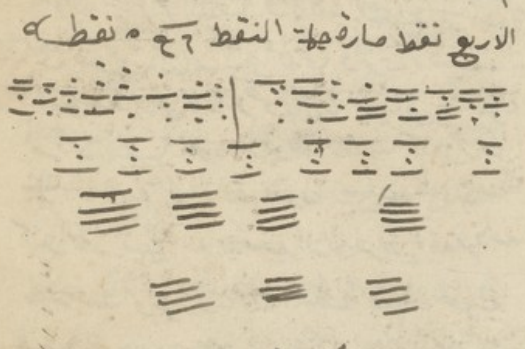 الاربع نقط صارة جملة النقط ٦٤ نقطة